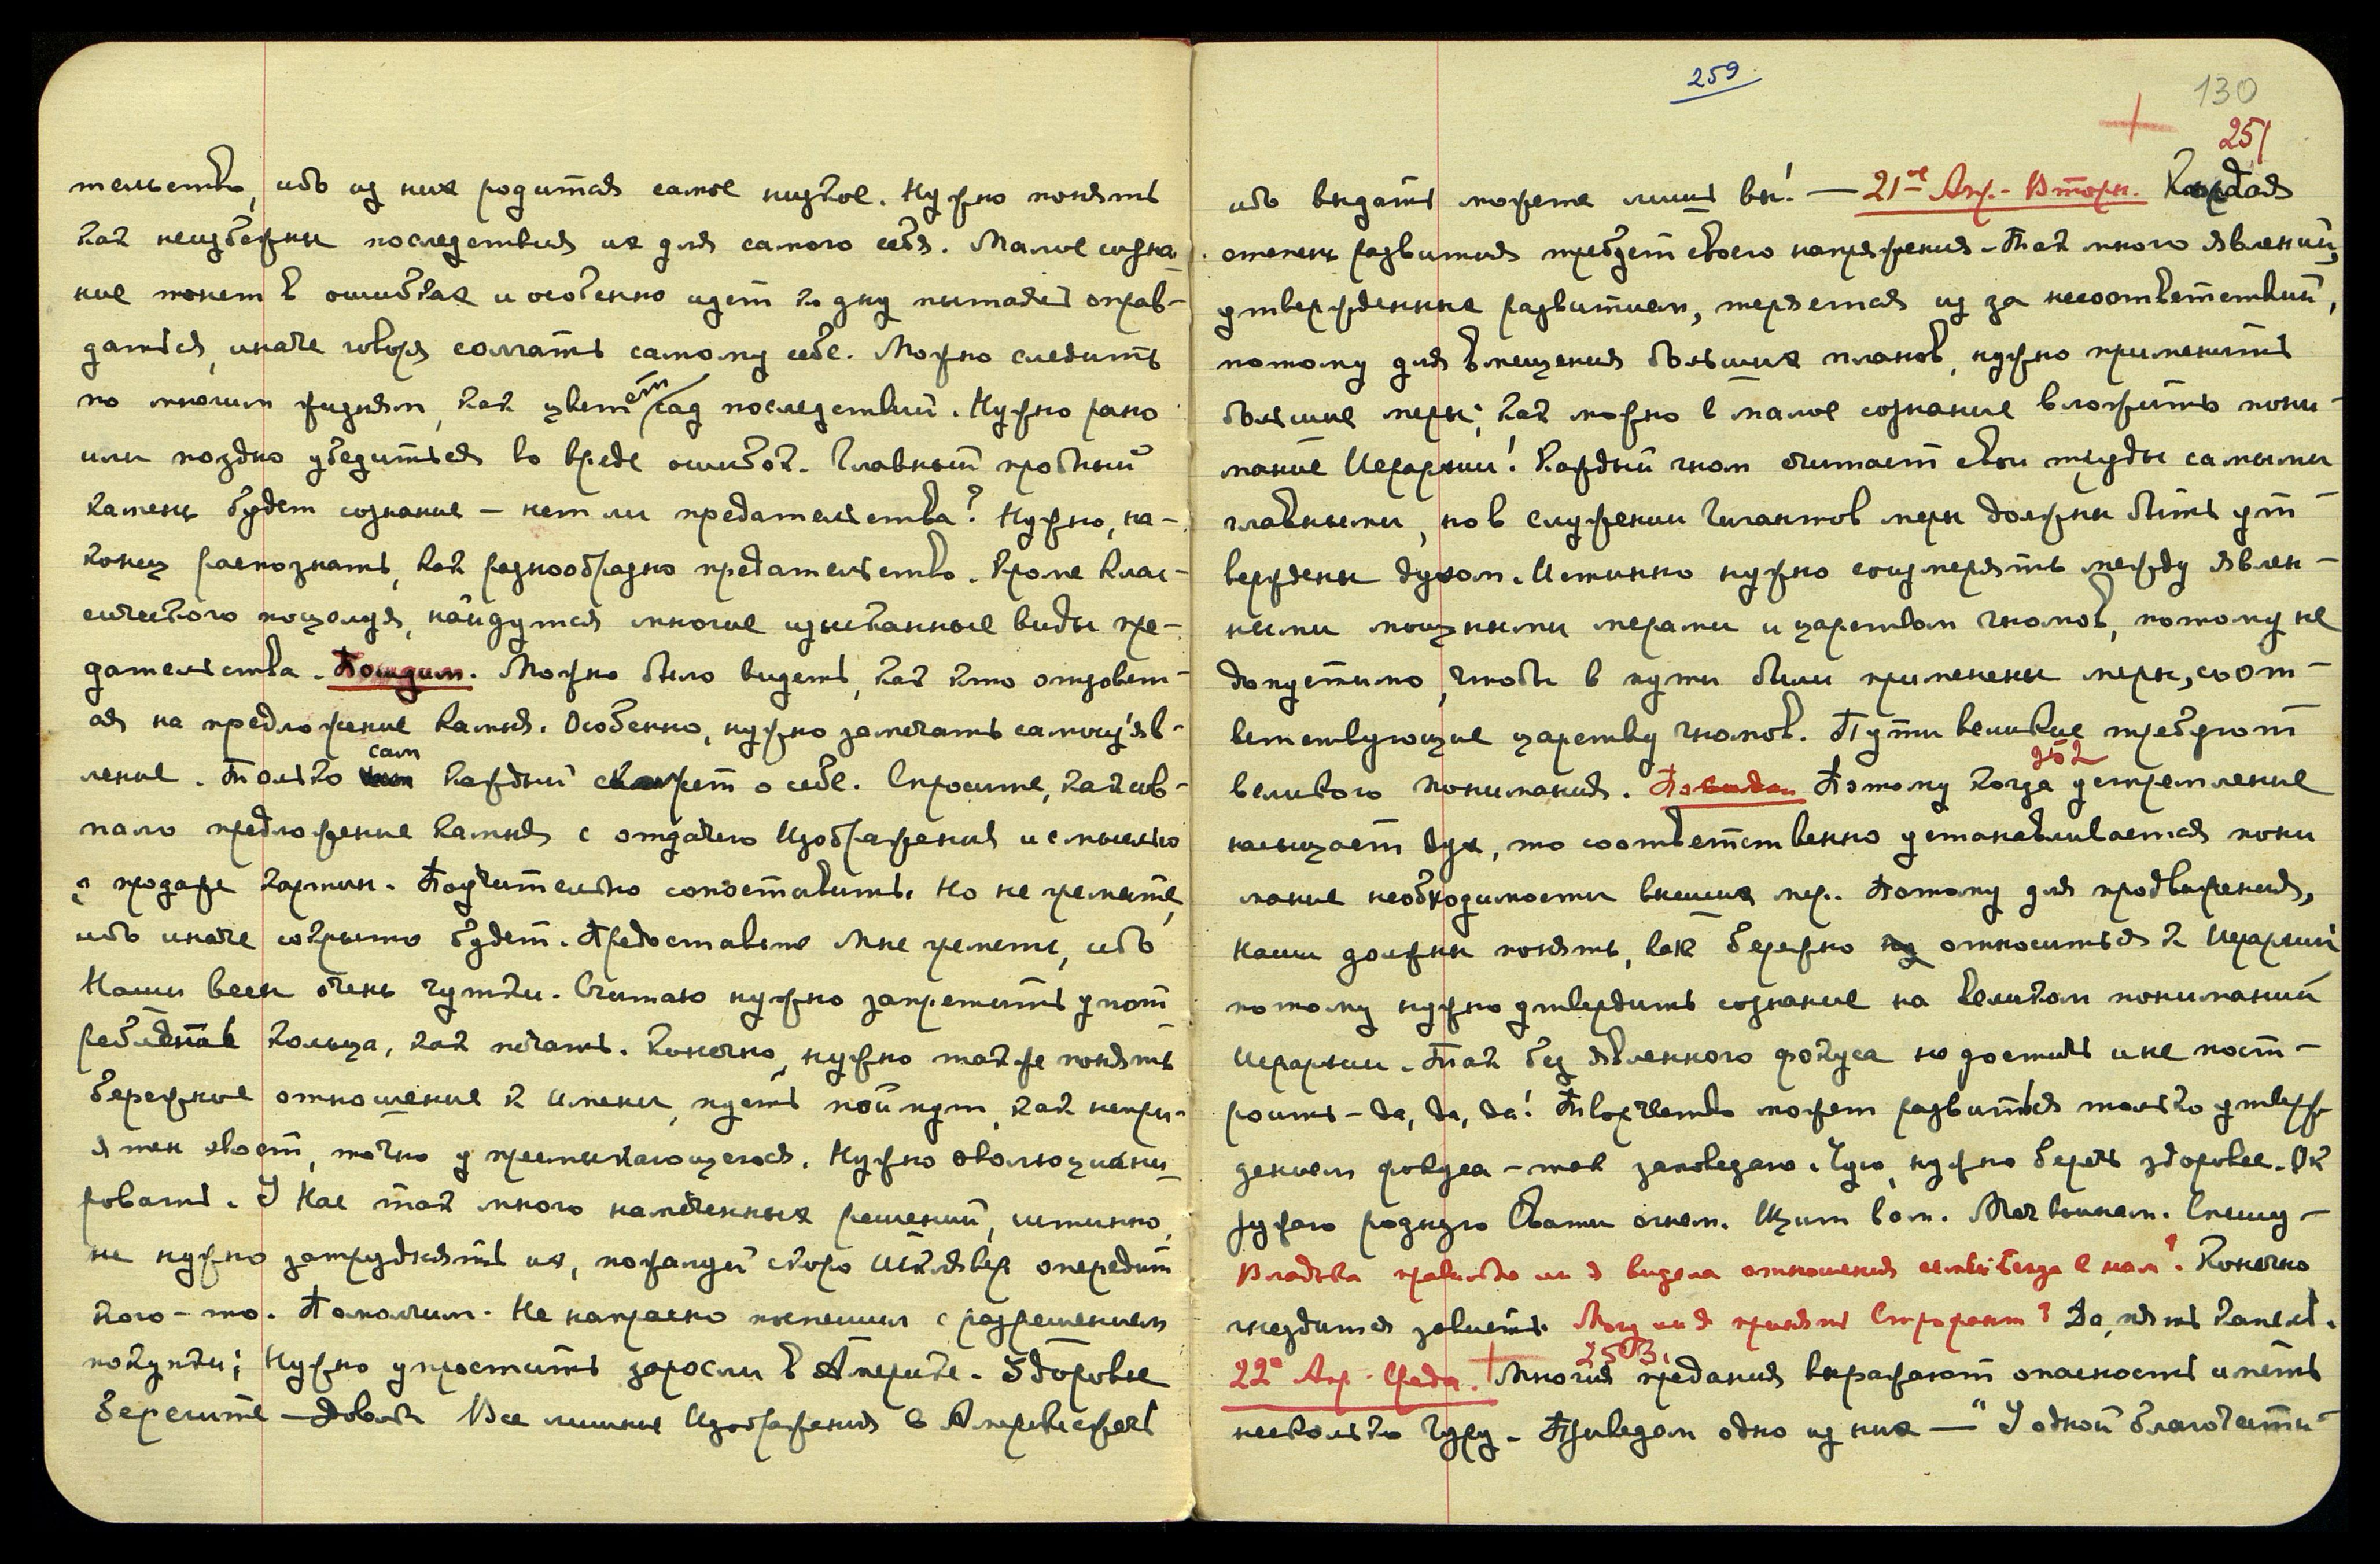 тельство, ибо из них родится самое низкое. Нужно понять
как неизбежны последствия их для самого себя. Малое созна-
ние тонет в ошибках и особенно идет ко дну пытаясь оправ-
даться, иначе говоря солгать самому себе. Можно следить
по многим жизням, как цветет сад последствий. Нужно рано
или поздно убедиться во вреде ошибок. Главный пробный
камень будет сознание – нет ли предательства? Нужно, на-
конец распознать, как разнообразно предательство. Кроме клас-
сического поцелуя, найдутся многие изысканные виды пре-
дательства. Пождем. Можно было видеть, как кто отзовет-
ся на предложение камня. Особенно, нужно замечать самоизъяв-
ление. Только сам каждый скажет о себе. Спросите, как сов-
пало предложение камня с отдачею Изображения и с мыслью
о продаже картин. Поучительно сопоставить. Но не гремите,
ибо иначе сокрыто будет. Предоставьте Мне греметь, ибо
Наши весы очень чутки. Считаю нужно запретить упот
ребление кольца, как печать. Конечно, нужно также понять
бережное отношение к имени, пусть поймут, как непри-
ятен хвост, точно у пресмыкающегося. Нужно эволюциони-
ровать. У Нас так много намеченных решений, истинно,
не нужно затруднять их, пожалуй скоро опередит
кого-то. Помолчим. Не напрасно поспешил с разрешением
покупки; Нужно упростить заросли в Америке. Здоровье
берегите – Довольно Все лишние Изображения в
259
130
251
ибо видать можете лишь вы! – 21-ое Апр.- Вторн. Каждая
степень развития требует своего напряжения. Так много явлений,
утвержденные развитием, теряется из за несоответствий,
потому для вмещения больших планов, нужно применить
большие меры; как можно в малое сознание вложить пони-
мание Иерархии! Каждый гном считает свои труды самыми
главными, но в служении Гигантов меры должны быть ут-
верждены духом. Истинно нужно соизмерять между явлен-
ными мощными мерами и царством гномов, потому не
допустимо, чтобы в пути были применены меры, соот-
ветствующие царству гномов. Пути великие требуют
252
великого понимания. Потому когда устремление
насыщает дух, то соответственно устанавливается пони
мание необходимости высших мер. Потому для продвижения,
наши должны понять, как бережно относиться к Иерархии
потому нужно утвердить сознание на великом понимании
Иерархии. Так без явленного фокуса не достичь и не пост-
роить – да, да, да! Творчество может развиться только утверж-
дением фокуса – так заповедаю. Чую, нужно беречь здоровье. Ок
ружаю родную Свати огнем. Щит вам. Меч вынем. Спешу –
Владыка правильно ли я видела отношения к нам? Конечно
гнездится зависть. Могу ли я принять Строфант? Да, пять капель.
253.
22е Апр. Среда. Многие предания выражают опасность иметь
несколько Гуру. Приведем одно из них – "У одной благочести-